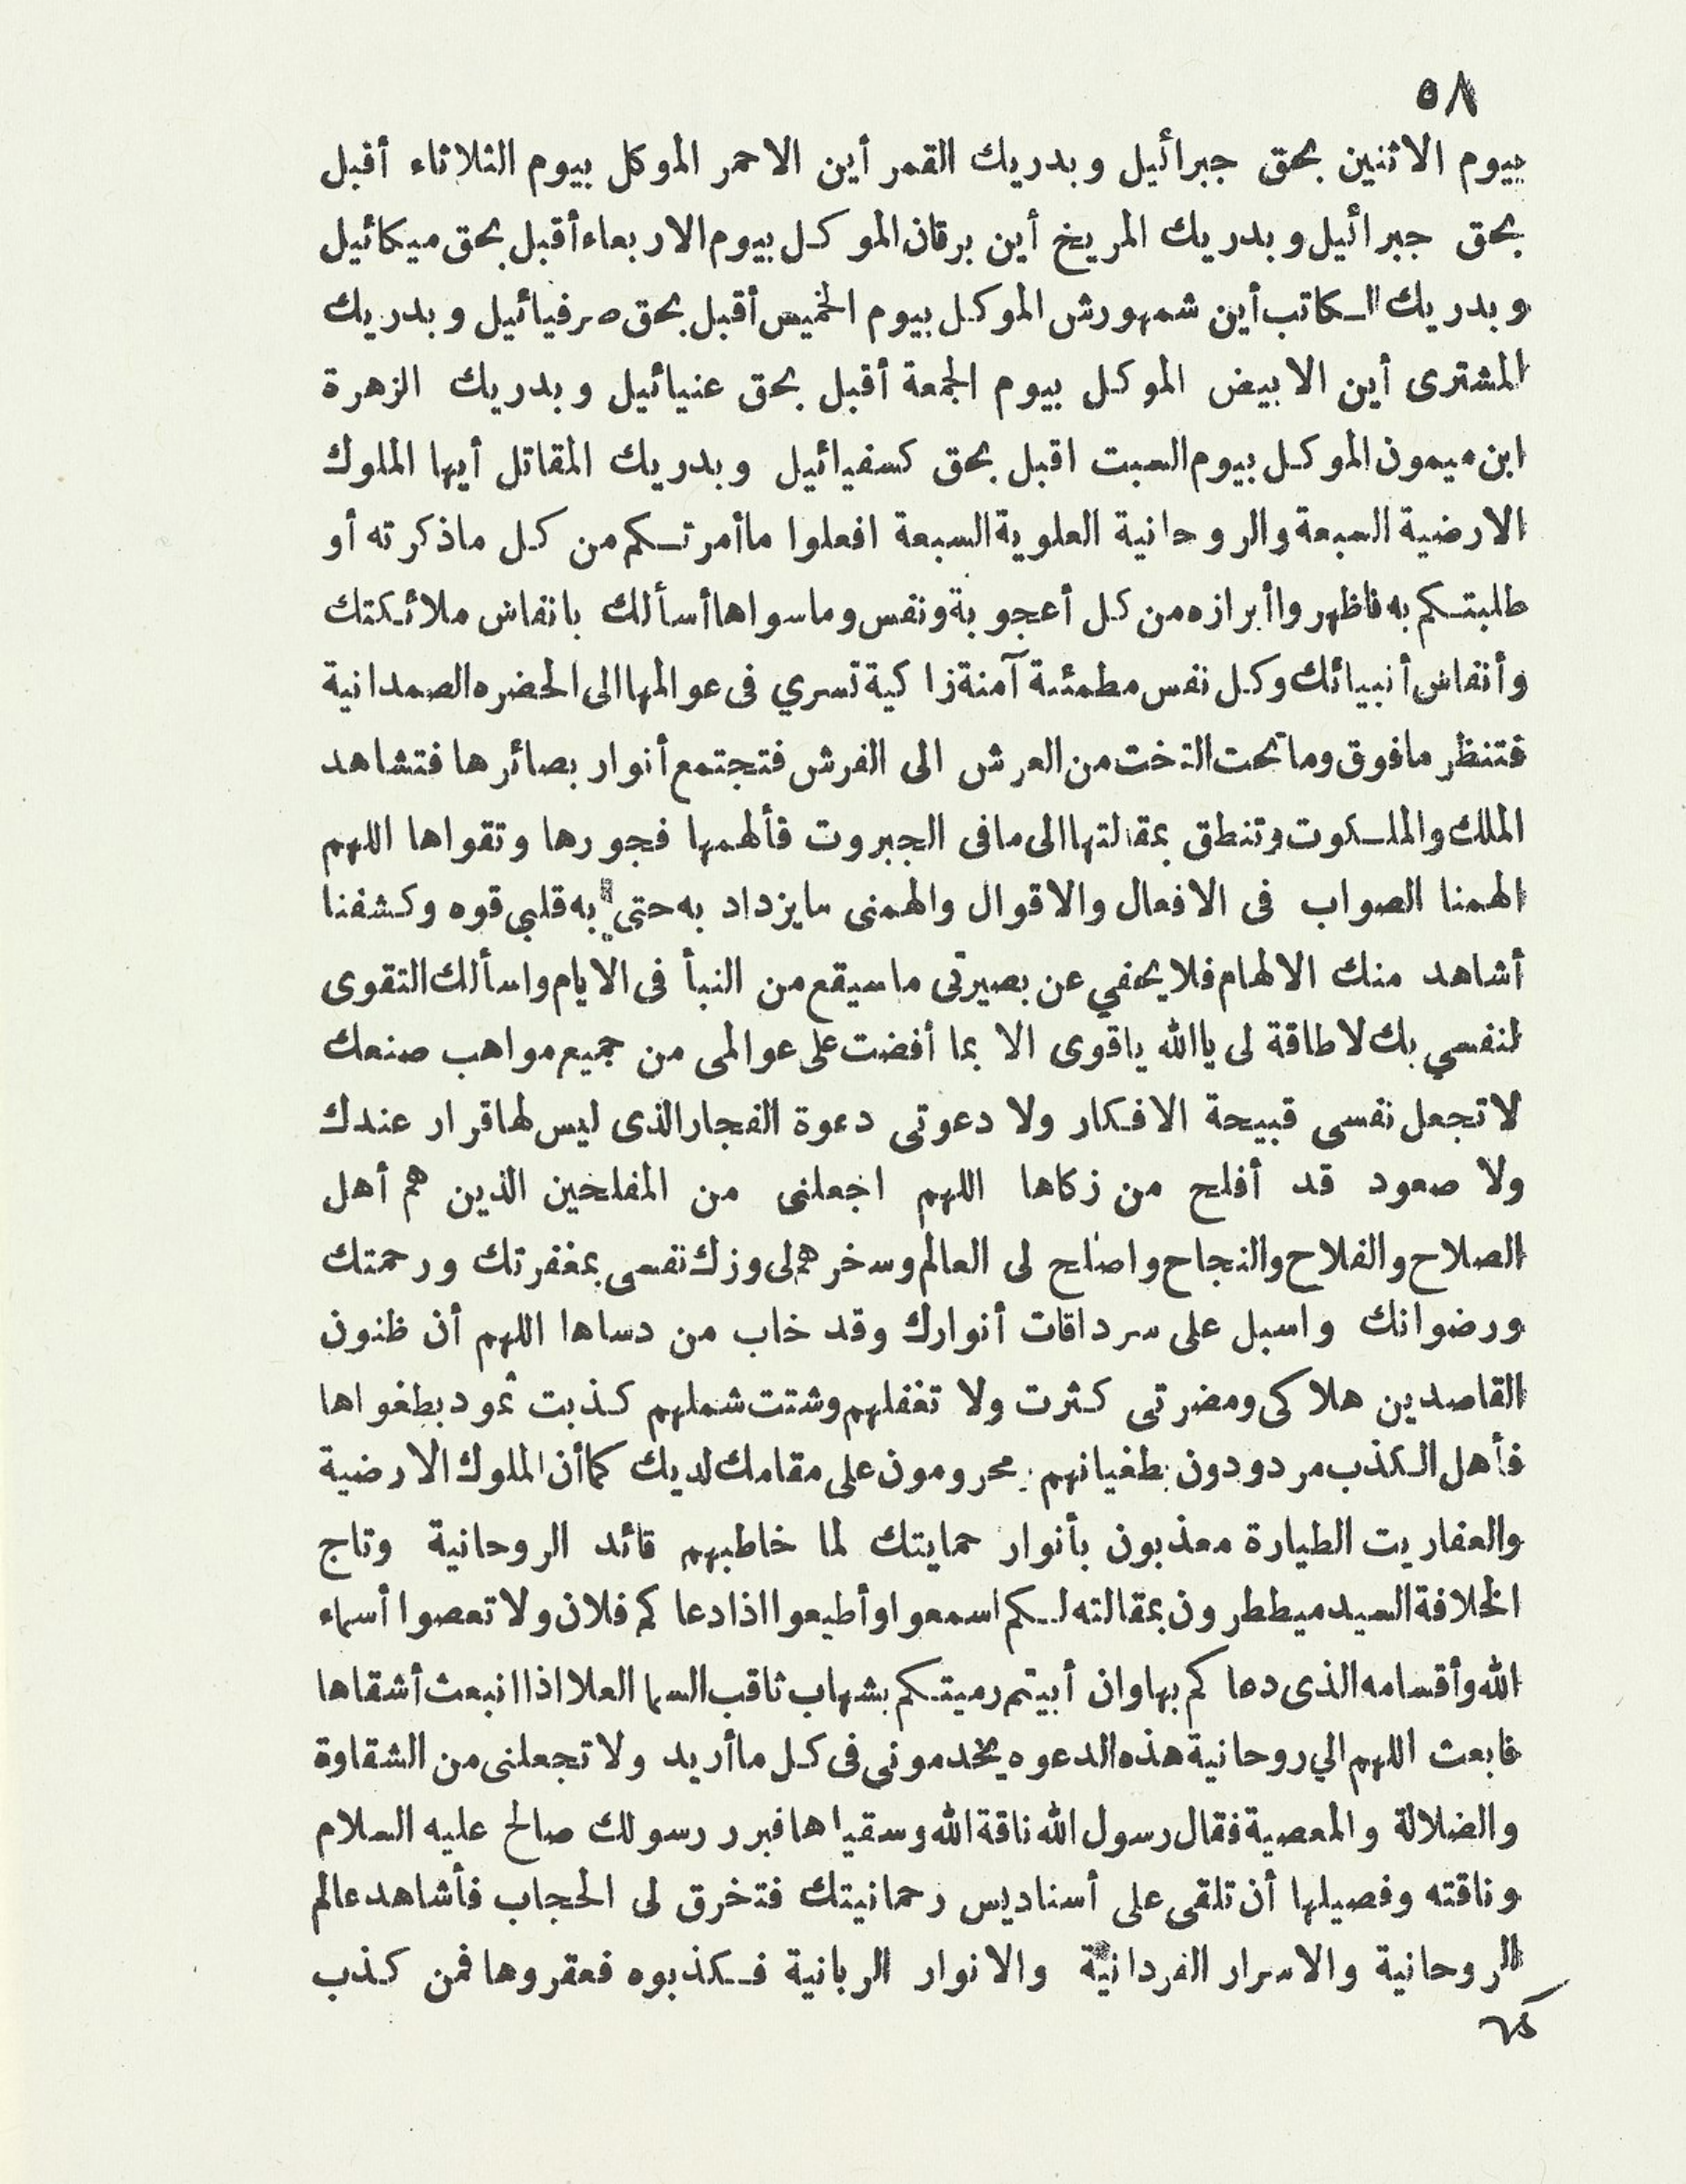 ٥٨
بيوم الاثنين بحق جبرائيل وبدريك القمر أين الاحمر الموكل بيوم الثلاثاء أقبل
بحق جبرائيل وبدريك المريخ أين برقان الموكل بيوم الاربعاء أقبل بحق ميكائيل
وبدريك الكاتب أين شمهورش الموكل بيوم الخميس أقبل بحق صرفيائيل وبدريك
المشترى أين الابيض الموكل بيوم الجمعة أقبل بحق عنيائيل وبدريك الزهرة
ابن ميمون الموكل بيوم السبت اقبل بحق كسفيائيل وبدريك المقاتل أيها الملوك
الارضية السبعة والروحانية العلوية السبعة افعلوا ماأمرتكم من كل ماذكرته أو
طلبتكم به فاظهروا أبرازه من كل أعجوبة ونفس وماسواها أسألك بانفاس ملائكتك
وأنفاس أنبيائك وكل نفس مطمئنة آمنة زاكية تسري فى عوالمها الى الحضره الصمدانية
فتنظر مافوق وماتحت التخت من العرش الى الفرش فتجتمع أنوار بصائرها فتشاهد
الملك والملكوت وتنطق بمقالتها الى مافى الجبروت فألهمها فجورها وتقواها اللهم
الهمنا الصواب فى الافعال والاقوال والهمنى مايزداد به حتى به قلبي قوه وكشفنا
أشاهد منك الالهام فلايخفي عن بصيرتى ماسيقع من النبأ فى الايام واسألك التقوى
لنفسي بك لاطاقة لى ياالله ياقوى الا بما أفضت على عوالمى من جميع مواهب صنعك
لاتجعل نفسى قبيحة الافكار ولا دعوتى دعوة الفجار الذى ليس لها قرار عندك
ولا صعود قد أفلح من زكاها اللهم اجعلنى من المفلحين الذين هم أهل
الصلاح والفلاح والنجاح واصلح لى العالم وسخرهم لى وزك نفسى بمغفرتك ورحمتك
ورضوانك واسبل على سرداقات أنوارك وقد خاب من دساها اللهم أن ظنون
القاصدين هلاكى ومضرتى كثرت ولا تغفلهم وشتت شملهم كذبت ثمود بطغواها
فأهل الكذب مردودون بطغيانهم محرومون على مقامك لديك كماأن الملوك الارضية
والعفاريت الطيارة معذبون بأنوار حمايتك لما خاطبهم قائد الروحانية وتاج
الخلافة السيد ميططرون بمقالته لكم اسمعوا وأطيعوا اذا دعاكم فلان ولاتعصوا أسماء
الله وأقسامه الذى دعاكم بها وان أبيتم رميتكم بشهاب ثاقب السما العلا اذا انبعث أشقاها
فابعث اللهم الي روحانية هذه الدعوه يخدمونى فى كل ماأريد ولاتجعلنى من الشقاوة
والضلالة والمعصية فقال رسول الله ناقة الله وسقياها فبرر رسولك صالح عليه السلام
وناقته وفصيلها أن تلقى على أسناديس رحمانيتك فتخرق لى الحجاب فأشاهد عالم
الروحانية والاسرار الفردانية والانوار الربانية فكذبوه فعقروها فمن كذب